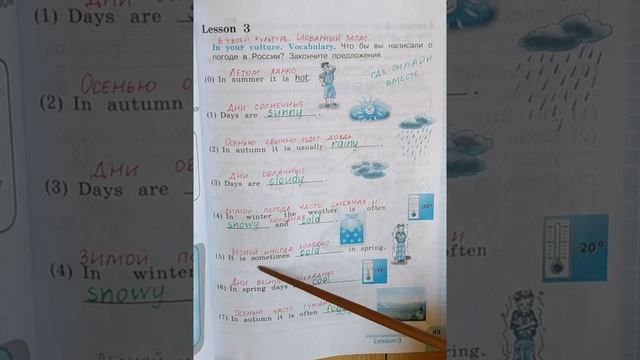 Lesson 3
В ТВОЕЙ КУЛЬТУРЕ. СЛОВАРНЫЙ ЗАПАС.
In your culture. Vocabulary. Что бы вы написали о
погоде в России? Закончите предложения.
ЛЕТОМ ЖАРКО
(0) In summer it is hot.
ГДЗ-ОНЛАЙН ВМЕСТЕ
ДНИ СОЛНЕЧНЫЕ.
(1) Days are sunny.
ОСЕНЬЮ ОБЫЧНО ИДЕТ ДОЖДЬ.
(2) In autumn it is usually rainy.
ДНИ ОБЛАЧНЫЕ
(3) Days are cloudy.
ЗИМОЙ ПОГОДА ЧАСТО СНЕЖНАЯ И
(4) In winter the weather is often
ХОЛОДНАЯ
snowy and cold.
-20°
ВЕСНОЙ ИНОГДА ХОЛОДНО
(5) It is sometimes cold in spring.
ДНИ ВЕСНОЙ ПРОХЛАДНЫЕ
(6) In spring days cool
ОСЕНЬЮ ЧАСТО
(7) In autumn it is often
63
Lesson 3
ОСЕНЬЮ О
(2) In autumn
ДНИ
(3) Days are
ЗИМОЙ П
(4) In winter
snowy
-20°